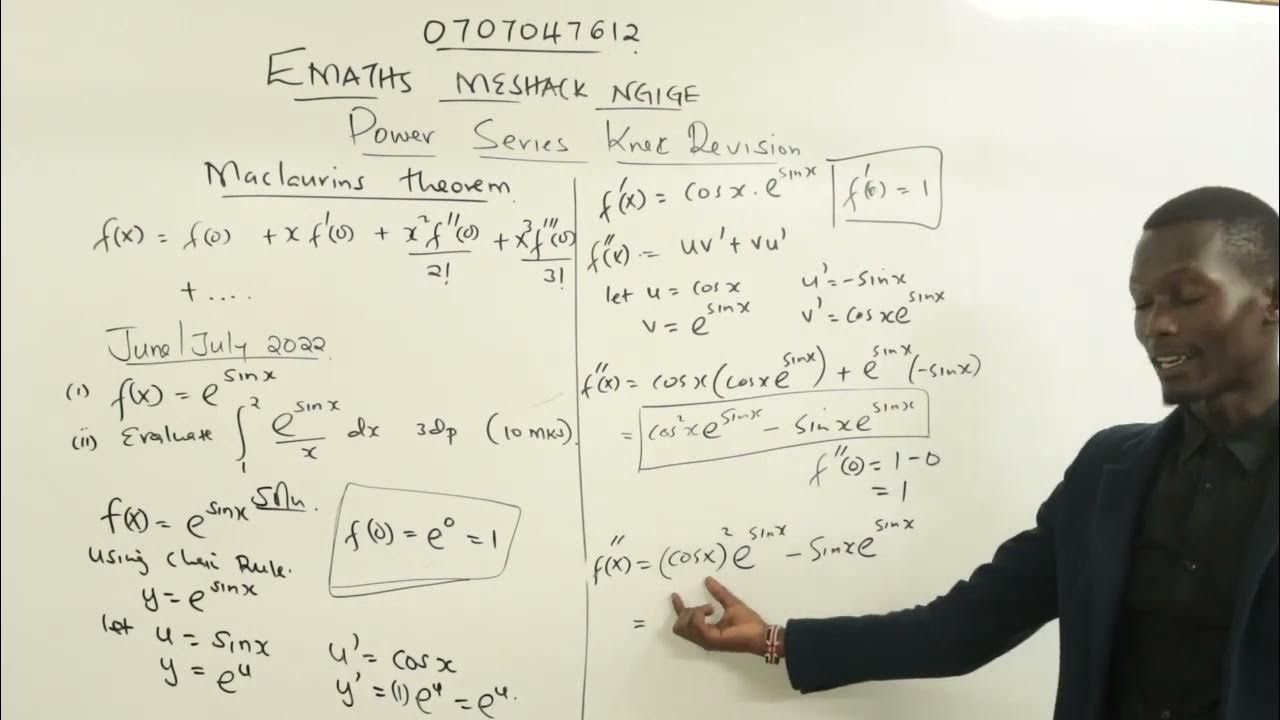 0707047612
EMATHS MESHACK NGIGE
Power Series Knec Revision
Maclaurins theorem
f(x) = f(0) + x f'(0) + x² f''(0)/2! + x³ f'''(0)/3!
+ ....
June/July 2022
(i) f(x) = e^sinx
(ii) Evaluate ∫₁² e^sinx/x dx 3dp (10 mks)
Soln.
f(x) = e^sinx
f(0) = e⁰ = 1
Using Chain Rule.
y = e^sinx
let u = sinx u' = cosx
y = e^u y' = (1)e^u = e^u.
f'(x) = cosx . e^sinx f'(0) = 1
f''(x) = uv' + vu'
let u = cosx u' = -sinx
v = e^sinx v' = cosxe^sinx
f''(x) = cosx(cosxe^sinx) + e^sinx(-sinx)
= cos²xe^sinx - sinxe^sinx
f''(0) = 1-0
= 1
f''(x) = (cosx)² e^sinx - sinxe^sinx
=